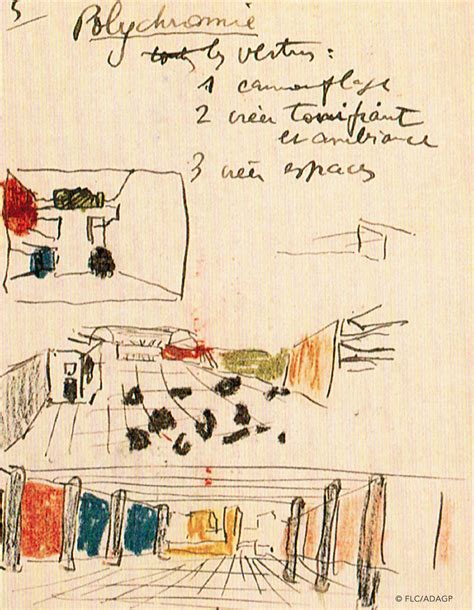 5
Polychromie
les vertus :
1 camouflage
2 créer tonifiant
et ambiance
3 créer espaces
© FLC/ADAGP